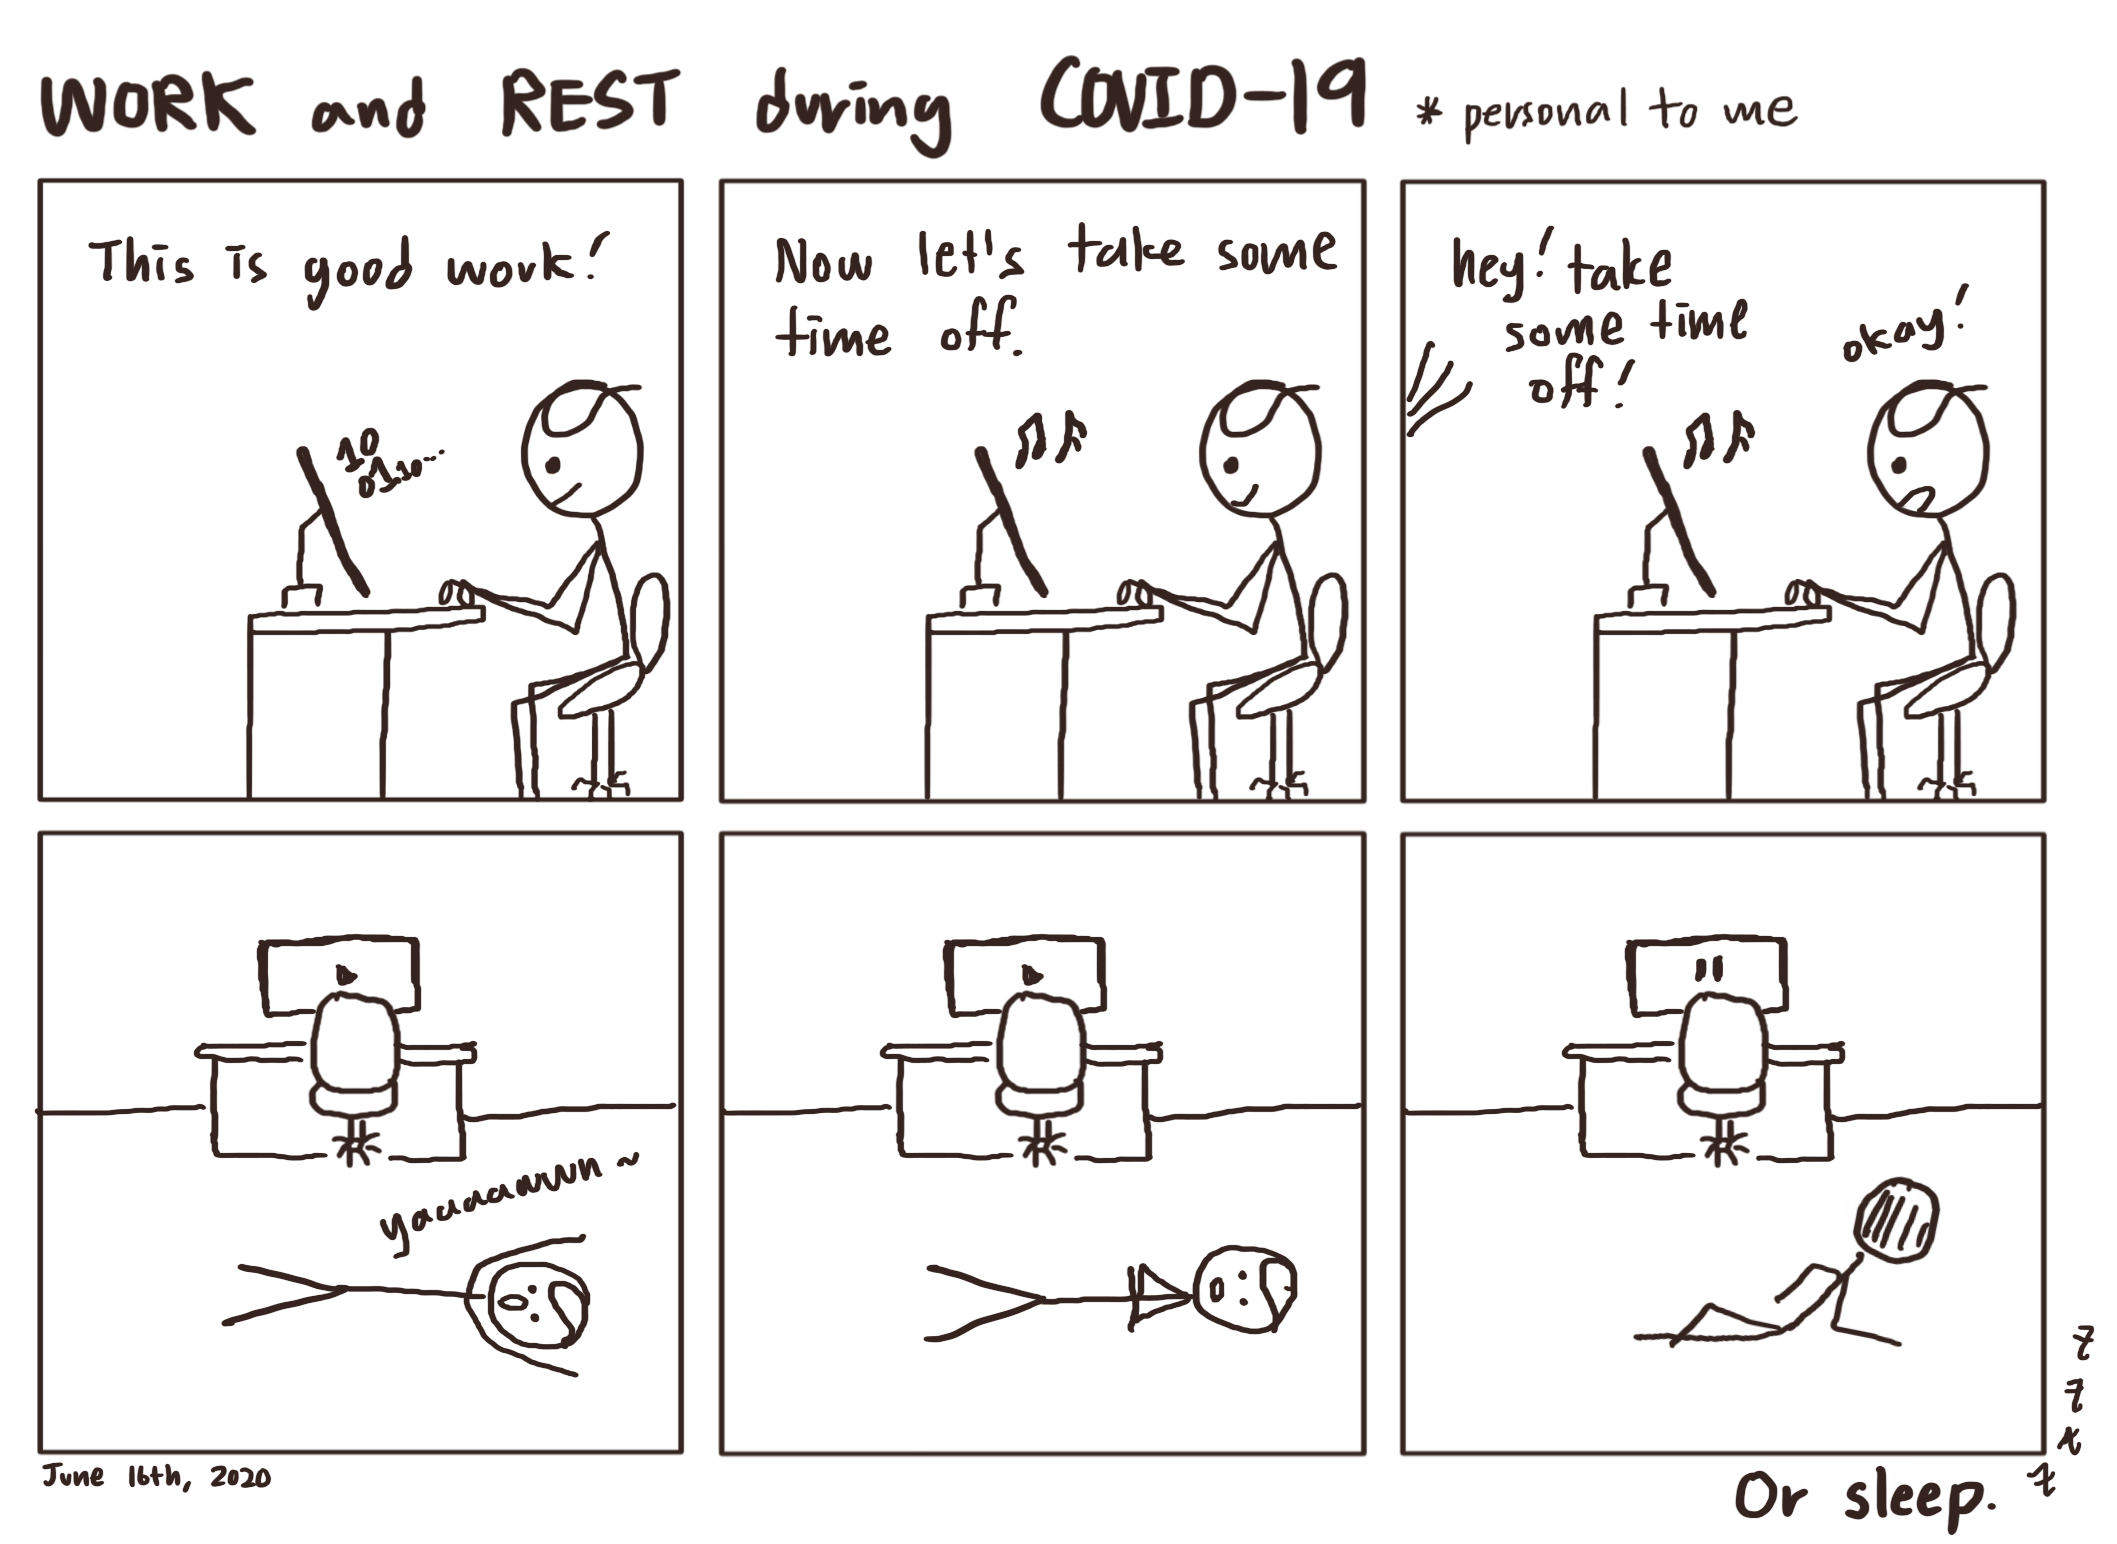 WORK and REST during COVID-19 * personal to me
This is good work!
10
0110...
Now let's take some
time off.
hey! take
some time
off!
okay!
yaaaaawwn ~
June 16th, 2020
Or sleep.